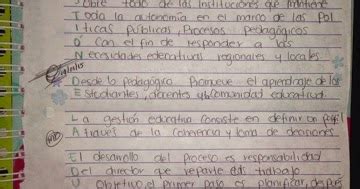 Sobre todo de las Instituciones que mantiene
Toda la autonomía en el marco de las Pol
Iticas Públicas, Procesos Pedagógicos
O con el fin de responder a las
Necesidades educativas regionales y locales
Desde lo Pedagógico Promueve el aprendizaje de los
Estudiantes, docentes y la Comunidad educativa
La gestión educativa consiste en definir un perfil
A través de la coherencia y toma de decisiones
El desarrollo del Proceso es responsabilidad
Del director que reparte eds trabajo
U objetivo el primer paso es planificar, después